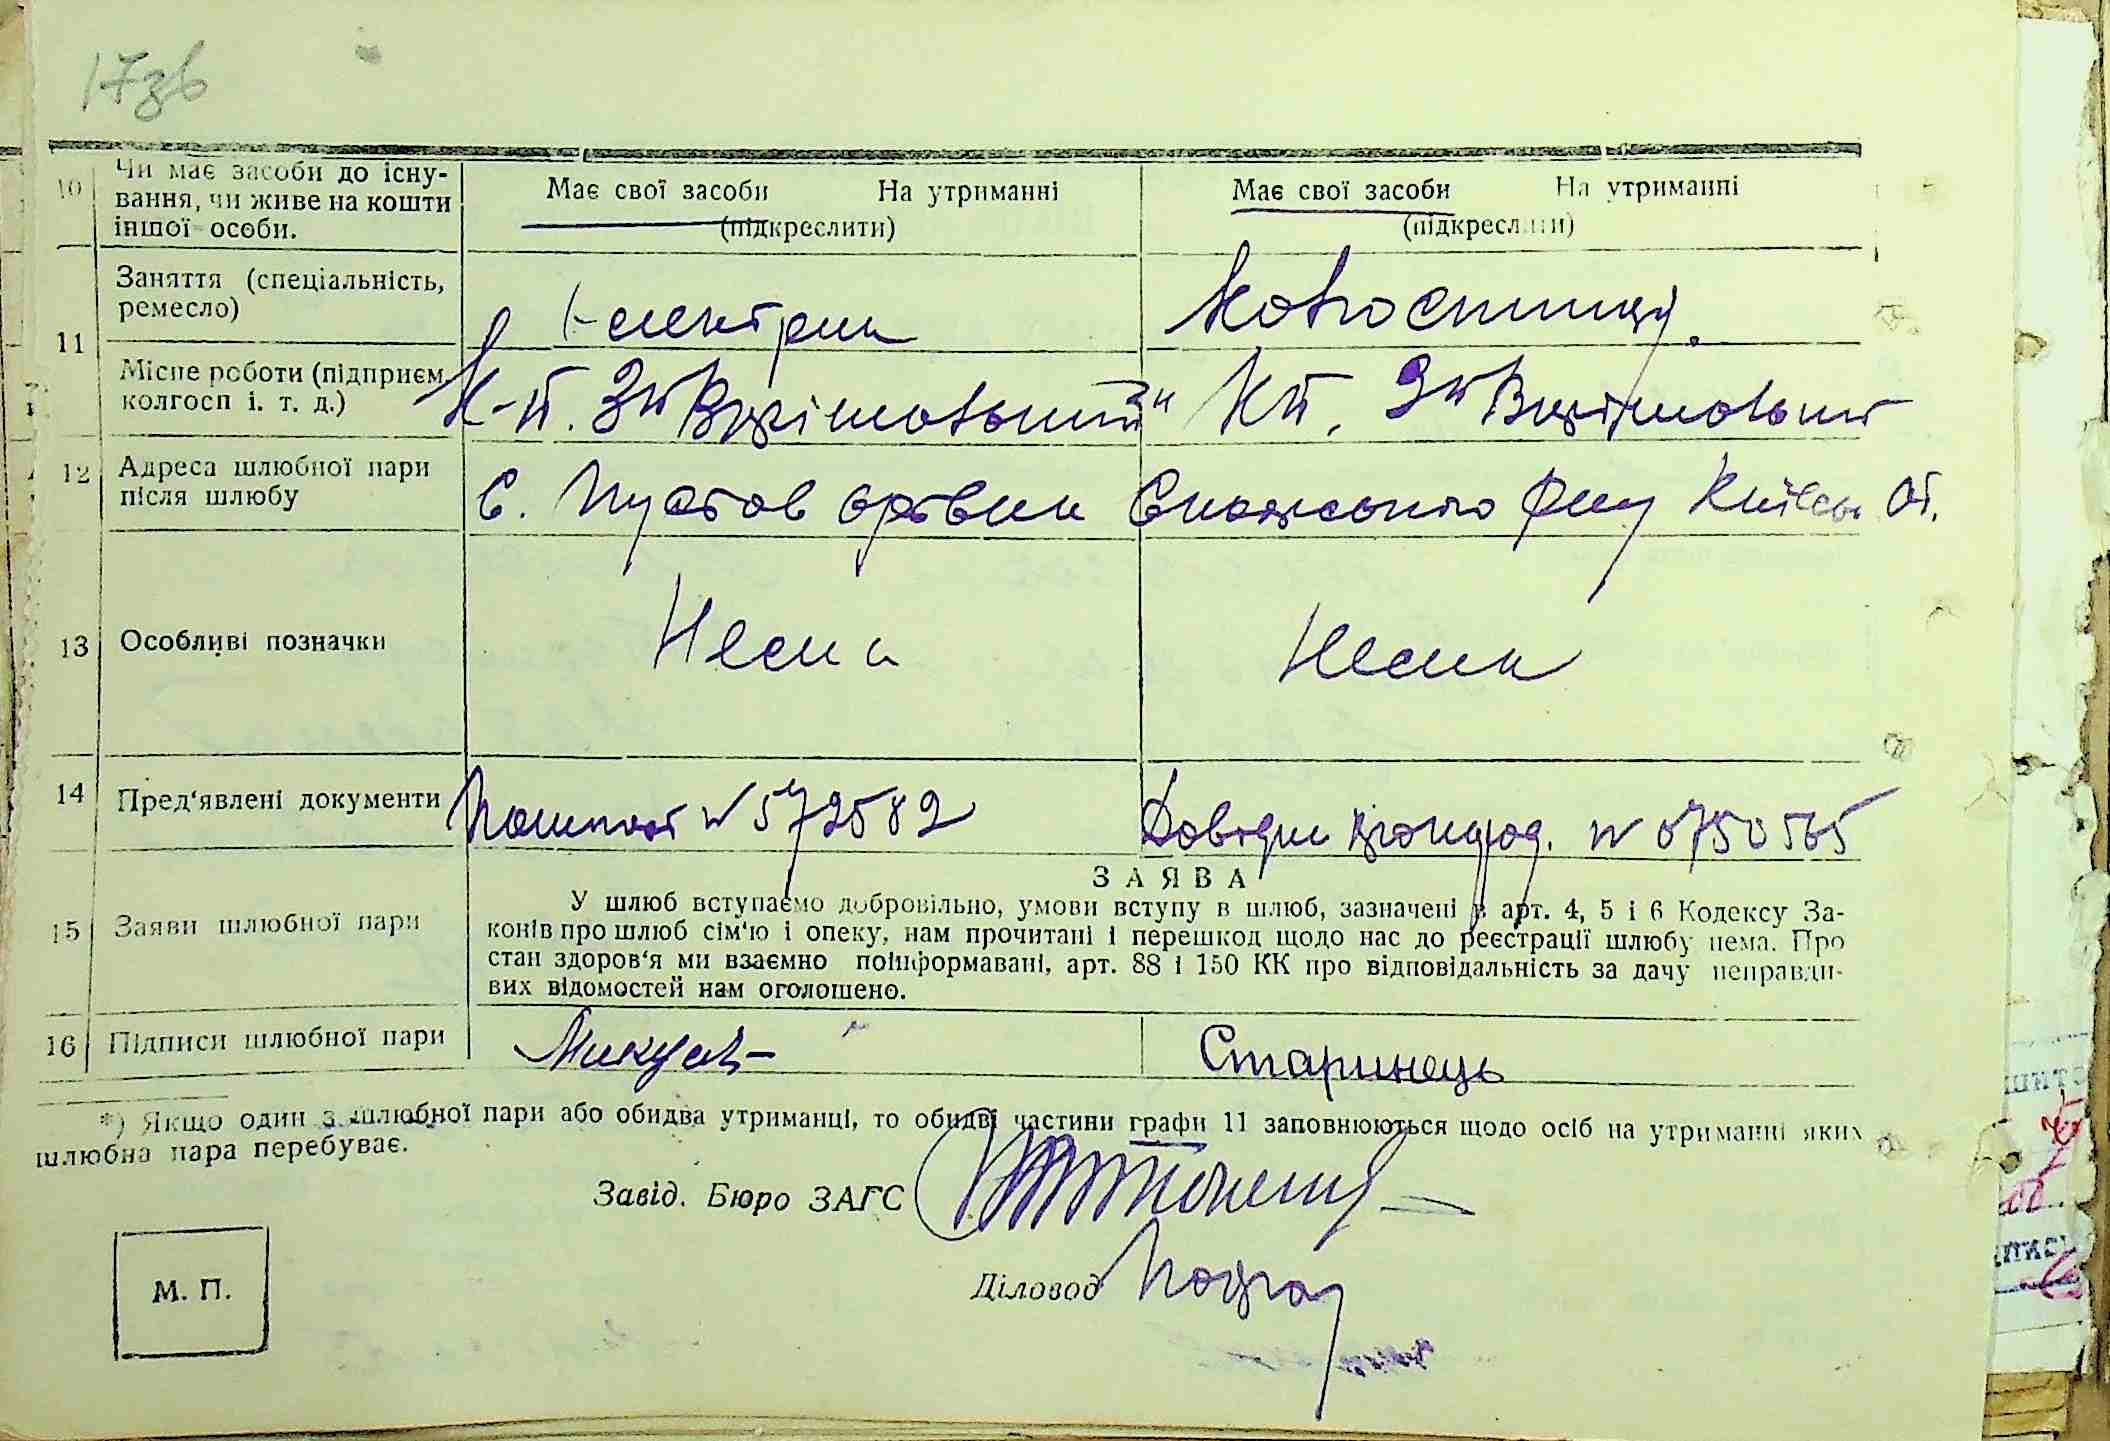 17зв
10 Чи має засоби до існу-
вання, чи живе на кошти
іншої особи.
Має свої засоби На утриманні
(підкреслити)
Має свої засоби На утриманні
(підкреслити)
11 Заняття (спеціальність,
ремесло)
електрик
Місце роботи (підприєм.
колгосп і. т. д.)
12 Адреса шлюбної пари
після шлюбу
С. Пустов
13 Особливі позначки
Нема
Нема
14 Пред'явлені документи
Пашпорт № 572582
Довідки № 0750565
15 Заяви шлюбної пари
ЗАЯВА
У шлюб вступаємо добровільно, умови вступу в шлюб, зазначені в арт. 4, 5 і 6 Кодексу За-
конів про шлюб сім'ю і опеку, нам прочитані і перешкод щодо нас до реєстрації шлюбу нема. Про
стан здоров'я ми взаємно поінформавані, арт. 88 і 150 КК про відповідальність за дачу неправди-
вих відомостей нам оголошено.
16 Підписи шлюбної пари
Старинець
*) Якщо один з шлюбної пари або обидва утриманці, то обидві частини графи 11 заповнюються щодо осіб на утриманні яких
шлюбна пара перебуває.
Завід. Бюро ЗАГС
Діловод
М. П.